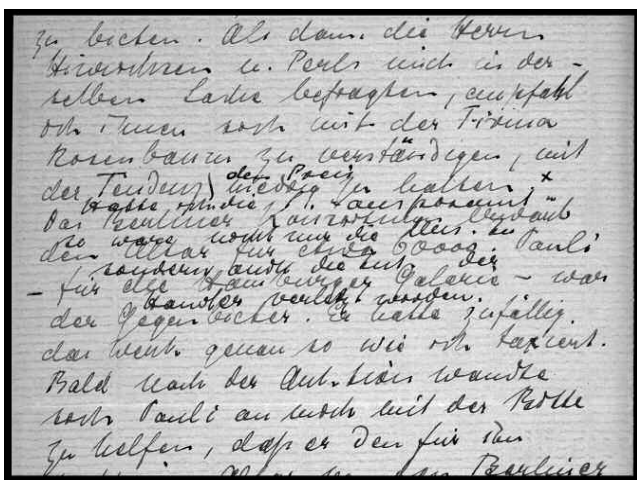 zu bieten. Als dann die Herrn
u. Perls mich in der-
selben Sache befragten, empfahl
ich ihnen sich mit der Firma
Rosenbaum zu verständigen, mit
den Preis
der Tendenz niedrig zu halten, x
Hätte ich die
Das Berliner Konsortium
so wäre nicht nur die
den Altar für etwa 60000. Pauli
sondern auch die der
- für die Hamburger Galerie - war
Händler verletzt worden.
der Gegenbieter. Er hatte zufällig
das Werk genau so wie ich taxiert.
Bald nach der Auktion wandte
sich Pauli an mich mit der Bitte
zu helfen, daß er den für ihn
Berliner